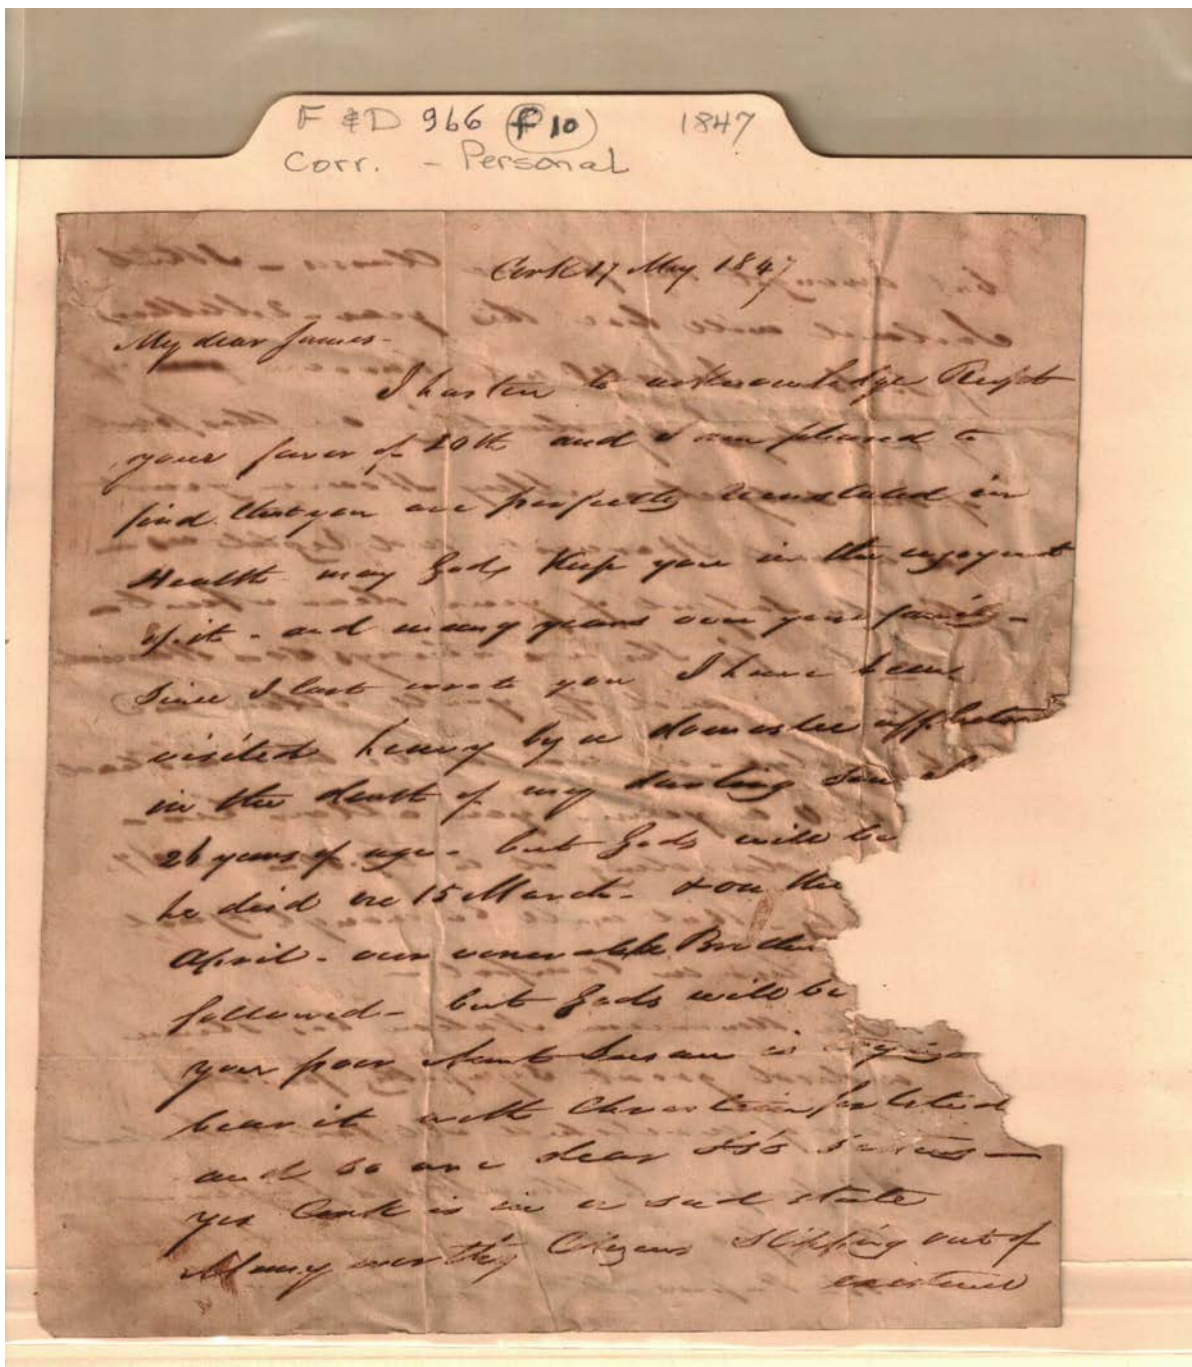 F & D 966 f 10 1847
Corr. - Personal
Cork 17 May 1847
My dear James-
I hasten to acknowledge Rect
your favor of 20th and I am pleased to
find that you are perfectly in
Health may God keep you in the enjoyment
of it - and many years over your family -
Since I last wrote you I have been
visited heavy by a domestic affliction
in the death of my darling Son
26 years of age - but Gods will be
he died on 15 March - & on the
April - our venerable Brother
followed - but Gods will be
your poor Aunt Susan is
bear it with Christian fortitude
and so are dear
yes Cork is in a sad state
Many worthy Citizens slipping out of
existence